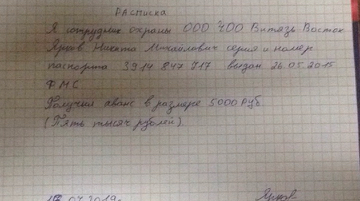 Расписка
Я сотрудник охраны ООО ЧОО Витязь Восток
Никита Михайлович серия и номер
паспорта 3914 847 717 выдан 26.05.2015
ФМС
Получил аванс в размере 5000 руб
(Пять тысяч рублей).
07.2019г